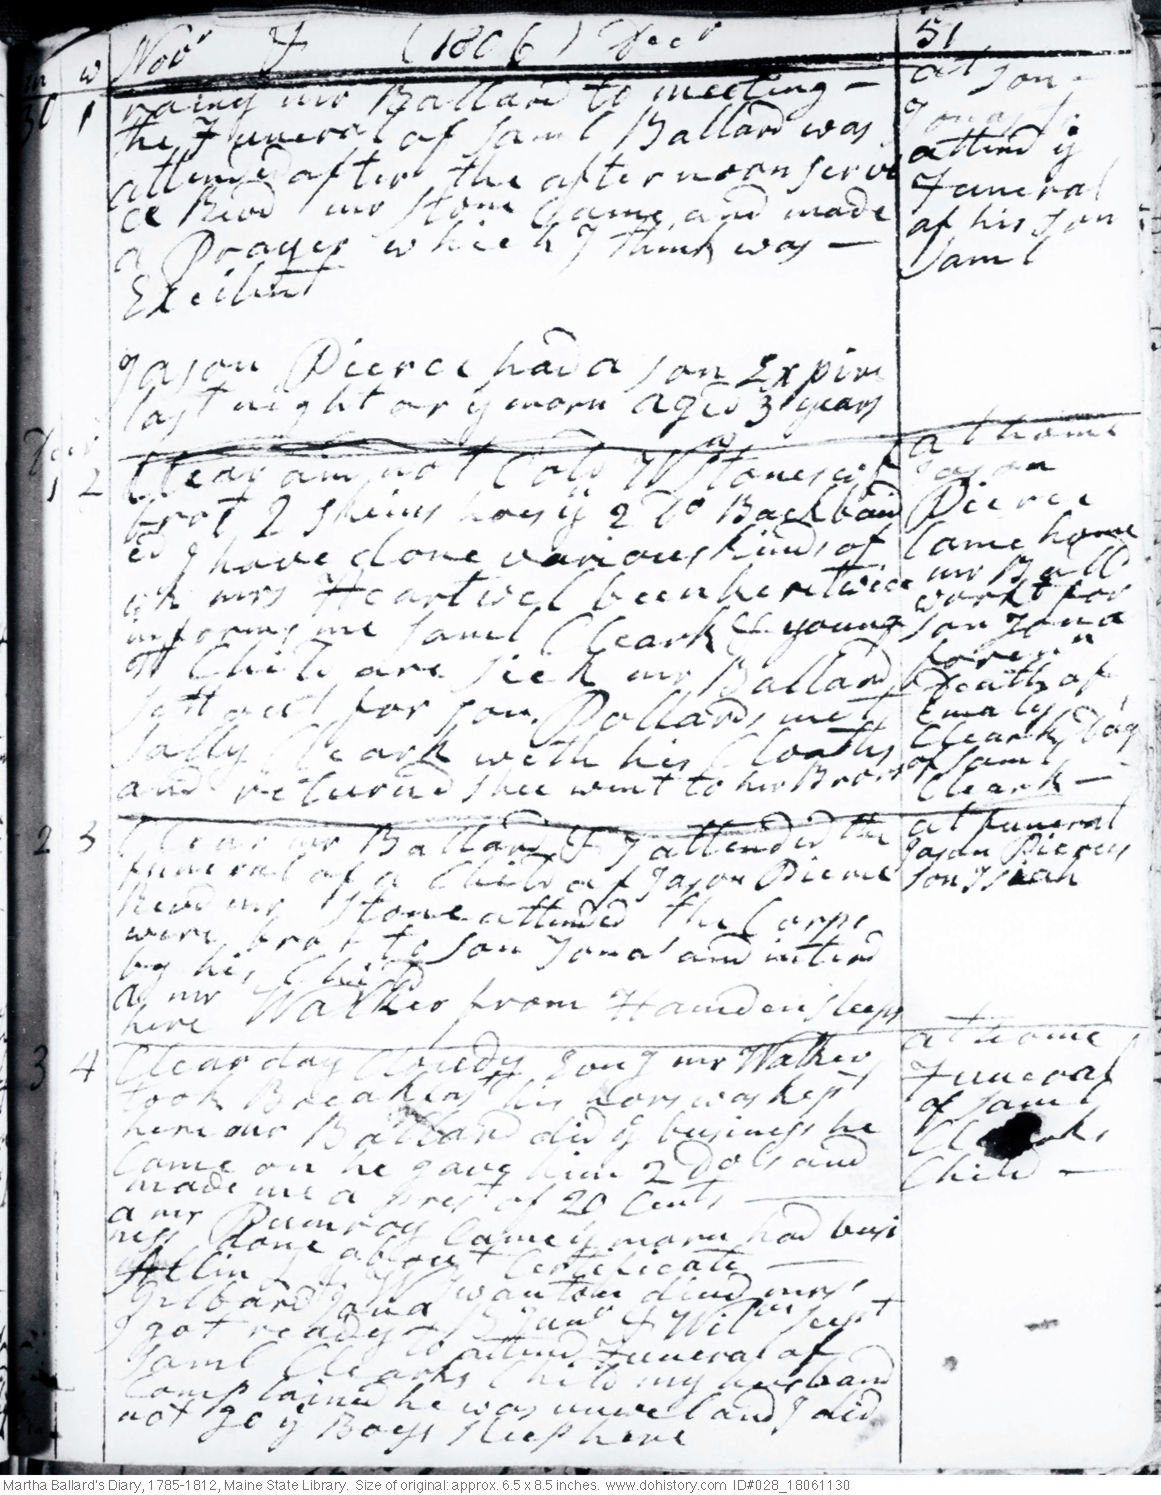 Novr & (1806) Decr 51
m w
30 1 raing mr Ballard to meeting -
the Funeral of Saml Ballard was
attended after the afternoon servi
ce Revd mr Stone Came and made
a Prayer which I think was -
Excilent
at son
Jonas to
attend ye
Funeral
of his son
Saml
Jason Pierce had a son Expire
last night or ys morn aged 3 years
Decr
1 2 Clear am not Cold Wm Stones wif
brot 2 skeins hors y 2 Do Backbaid
ed I have done various kinds of
wk mrs Heartwel been here twice
informs me Saml Cleark & young
st Child are sick mr Ballard
sett out for son Pollards mett
Sally Cleark with his Cloaths
and returnd shee went to her Brors
at home
Jason
Pierce
Came home
mr Ball
workt for
son Jona
foren n
Death of
Emaly
Clearks Dag
of Saml
Cleark -
2 3 Clear mr Ballard & I attended the
funeral of a Child of Jason Pierce
Revd mr Stone attended the Corps
were brot to son Jonas and intered
by his Child
a mr Walker from Hamden sleeps
here
at funeral
Jason Pierces
son Isiah
3 4 Clear day Cloudy Eveng mr Walker
took Breakfast his hors was kept
here mr Ballard did ye business he
Came on he gave him 2 Dols and
made me a prest of 20 Cents
a mr Pumroy Came ys morn had busi
ness done about Certificate
Allin & J Wiswanton dined mrs
Gilbard Jona Bjamn & Wilm supt
I got ready to attend Funeral of
Saml Clearks Child my husband
Complained he was unwel and I did
not go ye Boys sleep here
at home
Funeral
of Saml
Clearks
Child -
Martha Ballard's Diary, 1785-1812, Maine State Library. Size of original: approx. 6.5 x 8.5 inches. www.dohistory.com ID#028_18061130